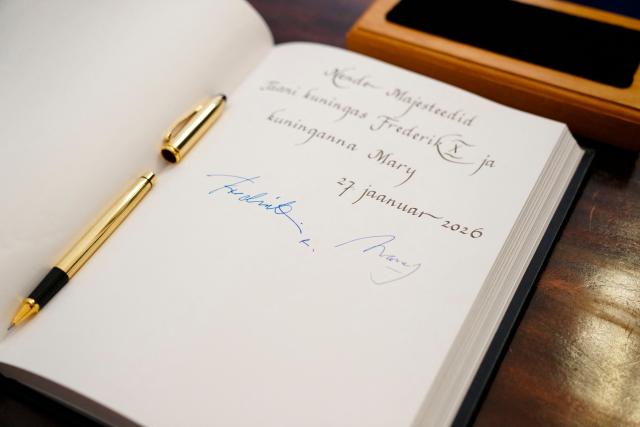 Nende Majesteedid
Taani kuningas Frederik X ja
kuninganna Mary
27. jaanuar 2026
Frederik R.
Mary